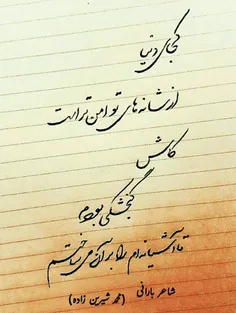 کجای دنیا
از شانه های تو امن تر است
کاش
گنجشکی بودم
تا آشیانه ام را بر آن می ساختم
شاعر بارانی
(محمد شیرین زاده)